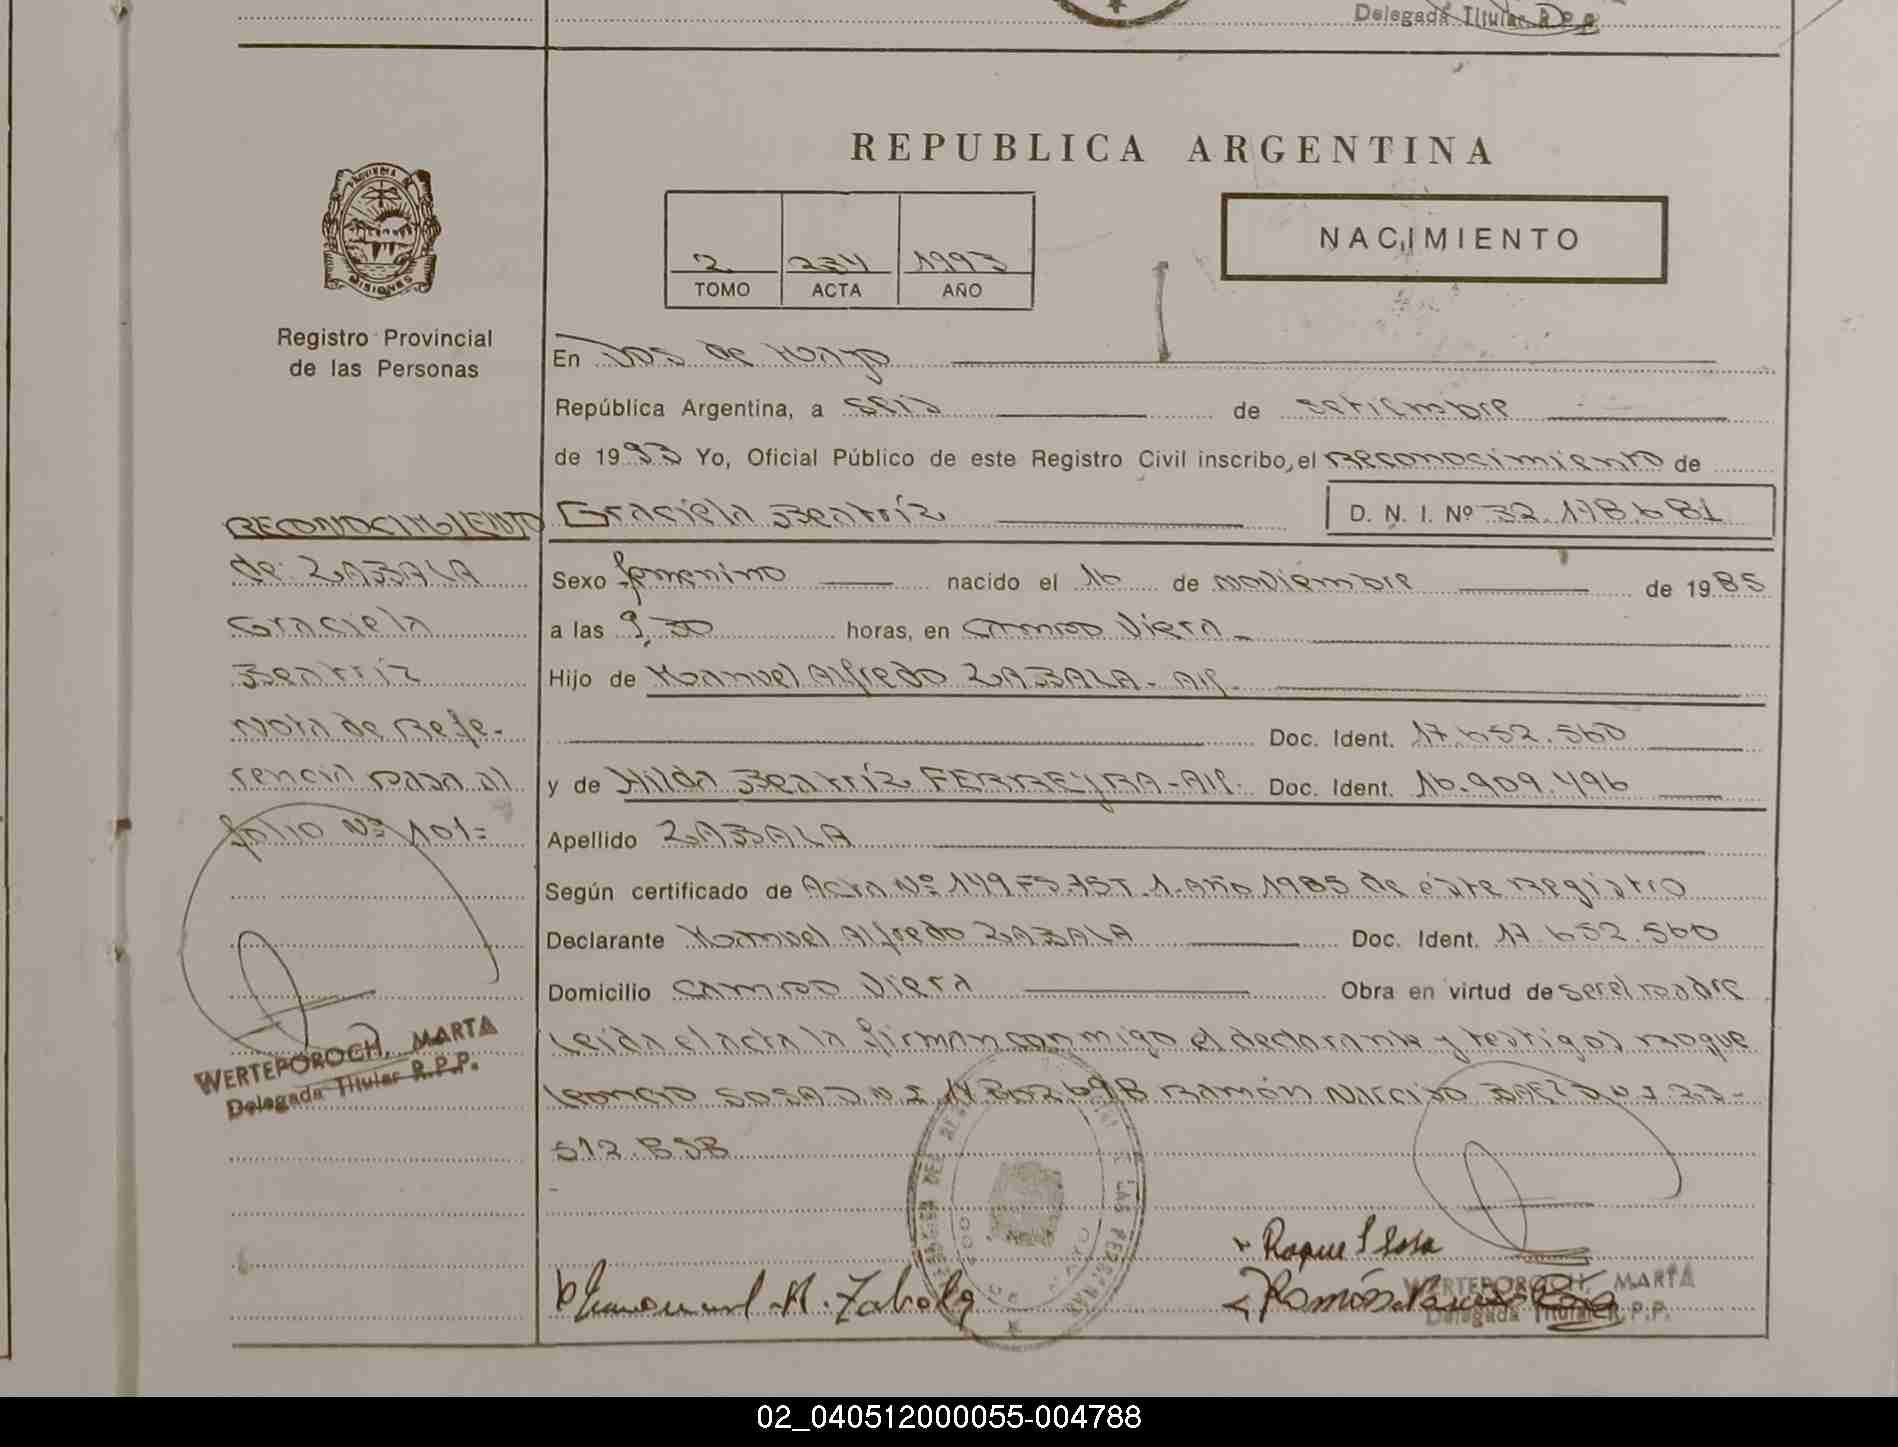 Delegada Titular R.P.P.
REPUBLICA ARGENTINA
NACIMIENTO
2 234 1993
TOMO ACTA AÑO
PROVINCIA DE
MISIONES
Registro Provincial
de las Personas
En Dos de Mayo
República Argentina, a seis de setiembre
de 1993 Yo, Oficial Público de este Registro Civil inscribo, el Reconocimiento de
Graciela Beatríz D. N. I. Nº 32.198.681
Sexo femenino nacido el 16 de noviembre de 1985
a las 9,30 horas, en Campo Viera
Hijo de Manuel Alfredo ZABALA - Arg.
Doc. Ident. 17.652.560
y de Hilda Beatríz FERREYRA - Arg. Doc. Ident. 16.909.496
Apellido ZABALA
Según certificado de Acta Nº 149 Fs 75 T. 1. Año 1985 de éste Registro
Declarante Manuel Alfredo ZABALA Doc. Ident. 17.652.560
Domicilio Campo Viera Obra en virtud de ser el padre
Leida el acta la firman conmigo el declarante y testigos Roque
Leoncio SOSA D N I 14.802.698 Ramón Narciso BAEZ D N I 23-
512.858
RECONOCIMIENTO
de: ZABALA
Graciela
Beatríz
Nota de Refe-
rencia pasa al
folio Nº 101=
WERTEPOROCH, MARTA
Delegada Titular R.P.P.
Roque L Sosa
Manuel A. Zabala
Ramón
WERTEPOROCH, MARTA
Delegada Titular R.P.P.
02_040512000055-004788